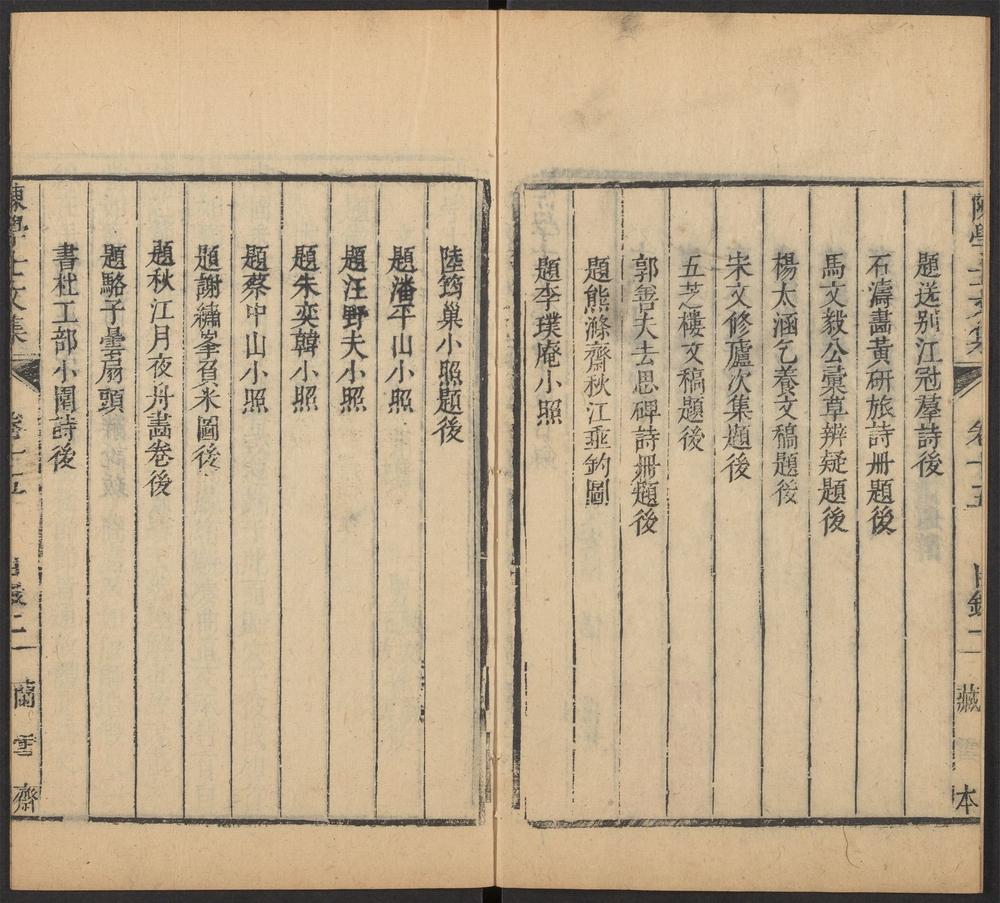 陳學士文集 卷十五 目錄二 藏 本
題送别江冠羣詩後
石濤畵黃研旅詩册題後
馬文毅公彙草辨疑題後
楊太涵乞養文稿題後
宋文修廬次集題後
五芝樓文稿題後
郭善夫去思碑詩册題後
題熊滌齋秋江垂釣圖
題李璞庵小照
陸筠巢小照題後
題潘平山小照
題汪野夫小照
題朱奕韓小照
題蔡中山小照
題謝繡峯負米圖後
題秋江月夜舟畵卷後
題駱子曇扇頭
書杜工部小園詩後
陳學士文集 卷十五 目錄二 蘭雪齋